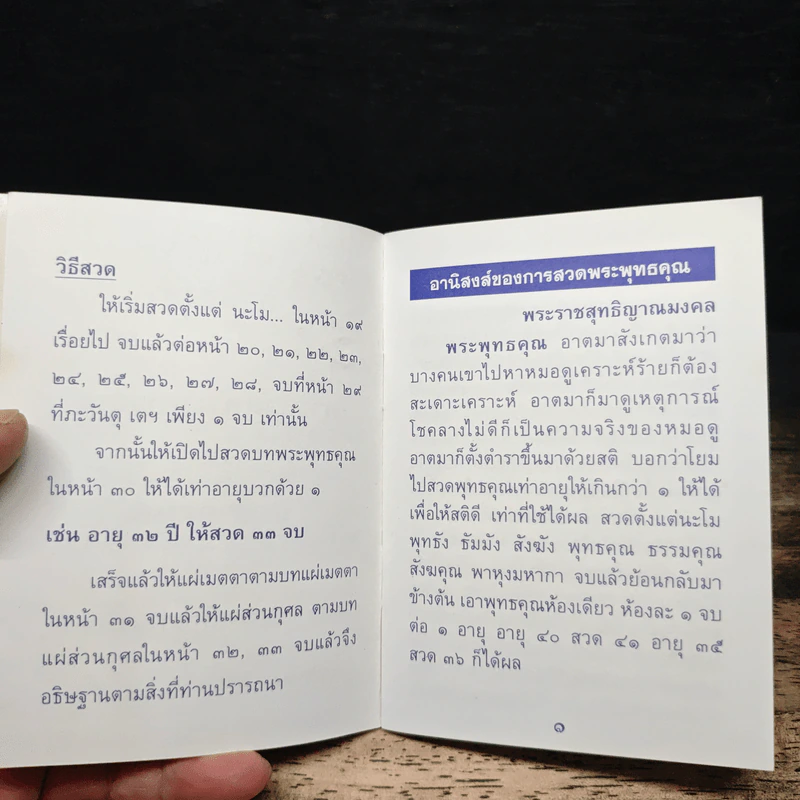 วิธีสวด
ให้เริ่มสวดตั้งแต่ นะโม... ในหน้า ๑๙
เรื่อยไป จบแล้วต่อหน้า ๒๐, ๒๑, ๒๒, ๒๓,
๒๔, ๒๕, ๒๖, ๒๗, ๒๘, จบที่หน้า ๒๙
ที่ภะวันตุ เตฯ เพียง ๑ จบ เท่านั้น
จากนั้นให้เปิดไปสวดบทพระพุทธคุณ
ในหน้า ๓๐ ให้ได้เท่าอายุบวกด้วย ๑
เช่น อายุ ๓๒ ปี ให้สวด ๓๓ จบ
เสร็จแล้วให้แผ่เมตตาตามบทแผ่เมตตา
ในหน้า ๓๑ จบแล้วให้แผ่ส่วนกุศล ตามบท
แผ่ส่วนกุศลในหน้า ๓๒, ๓๓ จบแล้วจึง
อธิษฐานตามสิ่งที่ท่านปรารถนา
อานิสงส์ของการสวดพระพุทธคุณ
พระราชสุทธิญาณมงคล
พระพุทธคุณ อาตมาสังเกตมาว่า
บางคนเขาไปหาหมอดูเคราะห์ร้ายก็ต้อง
สะเดาะเคราะห์ อาตมาก็มาดูเหตุการณ์
โชคลางไม่ดีก็เป็นความจริงของหมอดู
อาตมาก็ตั้งตำราขึ้นมาด้วยสติ บอกว่าโยม
ไปสวดพุทธคุณเท่าอายุให้เกินกว่า ๑ ให้ได้
เพื่อให้สติดี เท่าที่ใช้ได้ผล สวดตั้งแต่นะโม
พุทธัง ธัมมัง สังฆัง พุทธคุณ ธรรมคุณ
สังฆคุณ พาหุงมหากา จบแล้วย้อนกลับมา
ข้างต้น เอาพุทธคุณห้องเดียว ห้องละ ๑ จบ
ต่อ ๑ อายุ อายุ ๔๐ สวด ๔๑ อายุ ๓๕
สวด ๓๖ ก็ได้ผล
๑